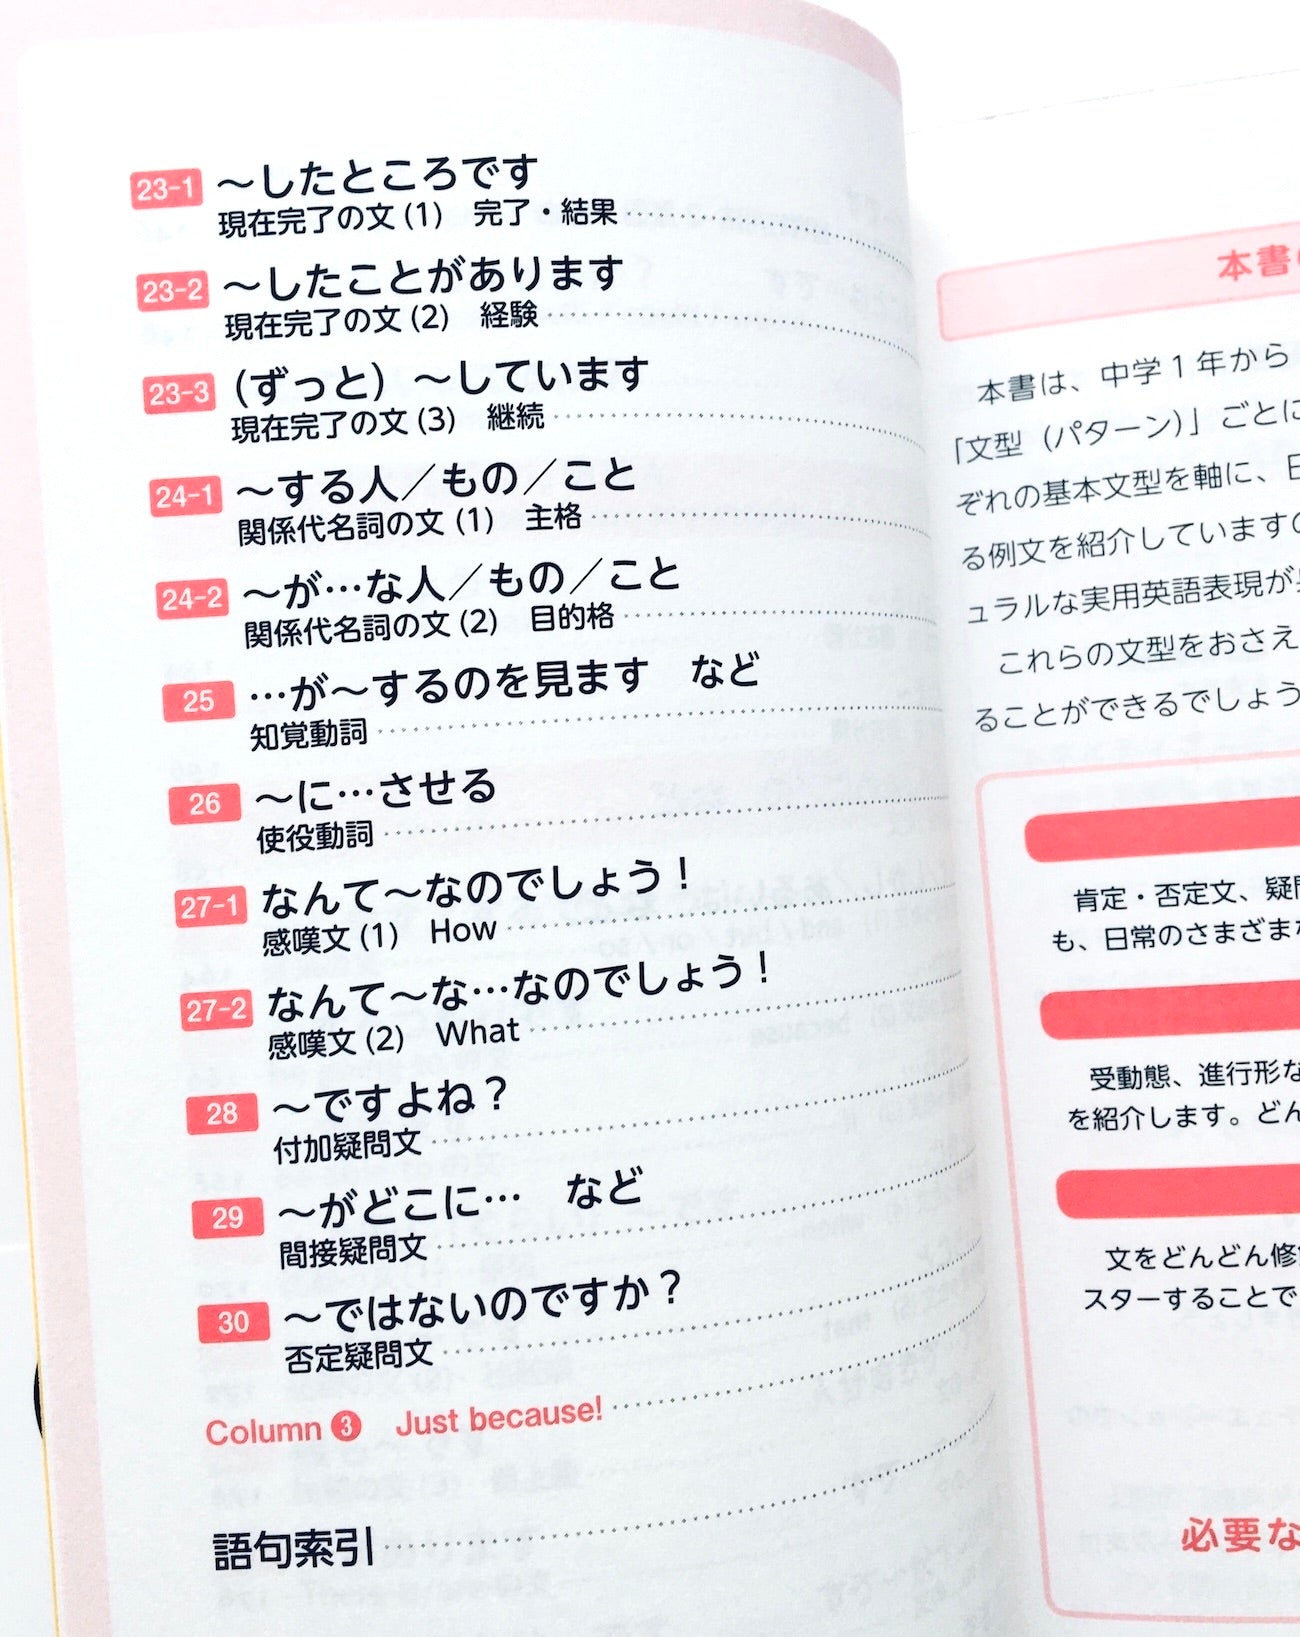 23-1 ～したところです
現在完了の文(1)　完了・結果
23-2 ～したことがあります
現在完了の文(2)　経験
23-3 (ずっと) ～しています
現在完了の文(3)　継続
24-1 ～する人／もの／こと
関係代名詞の文(1)　主格
24-2 ～が…な人／もの／こと
関係代名詞の文(2)　目的格
25 …が～するのを見ます　など
知覚動詞
26 ～に…させる
使役動詞
27-1 なんて～なのでしょう！
感嘆文(1)　How
27-2 なんて～な…なのでしょう！
感嘆文(2)　What
28 ～ですよね？
付加疑問文
29 ～がどこに…　など
間接疑問文
30 ～ではないのですか？
否定疑問文
Column ❸　Just because!
語句索引
本書
本書は、中学1年から
「文型（パターン）」ごとに
ぞれの基本文型を軸に、
る例文を紹介しています
ュラルな実用英語表現が
これらの文型をおさえ
ることができるでしょう
肯定・否定文、疑
も、日常のさまざま
受動態、進行形な
を紹介します。どん
文をどんどん修
スターすることで
必要な